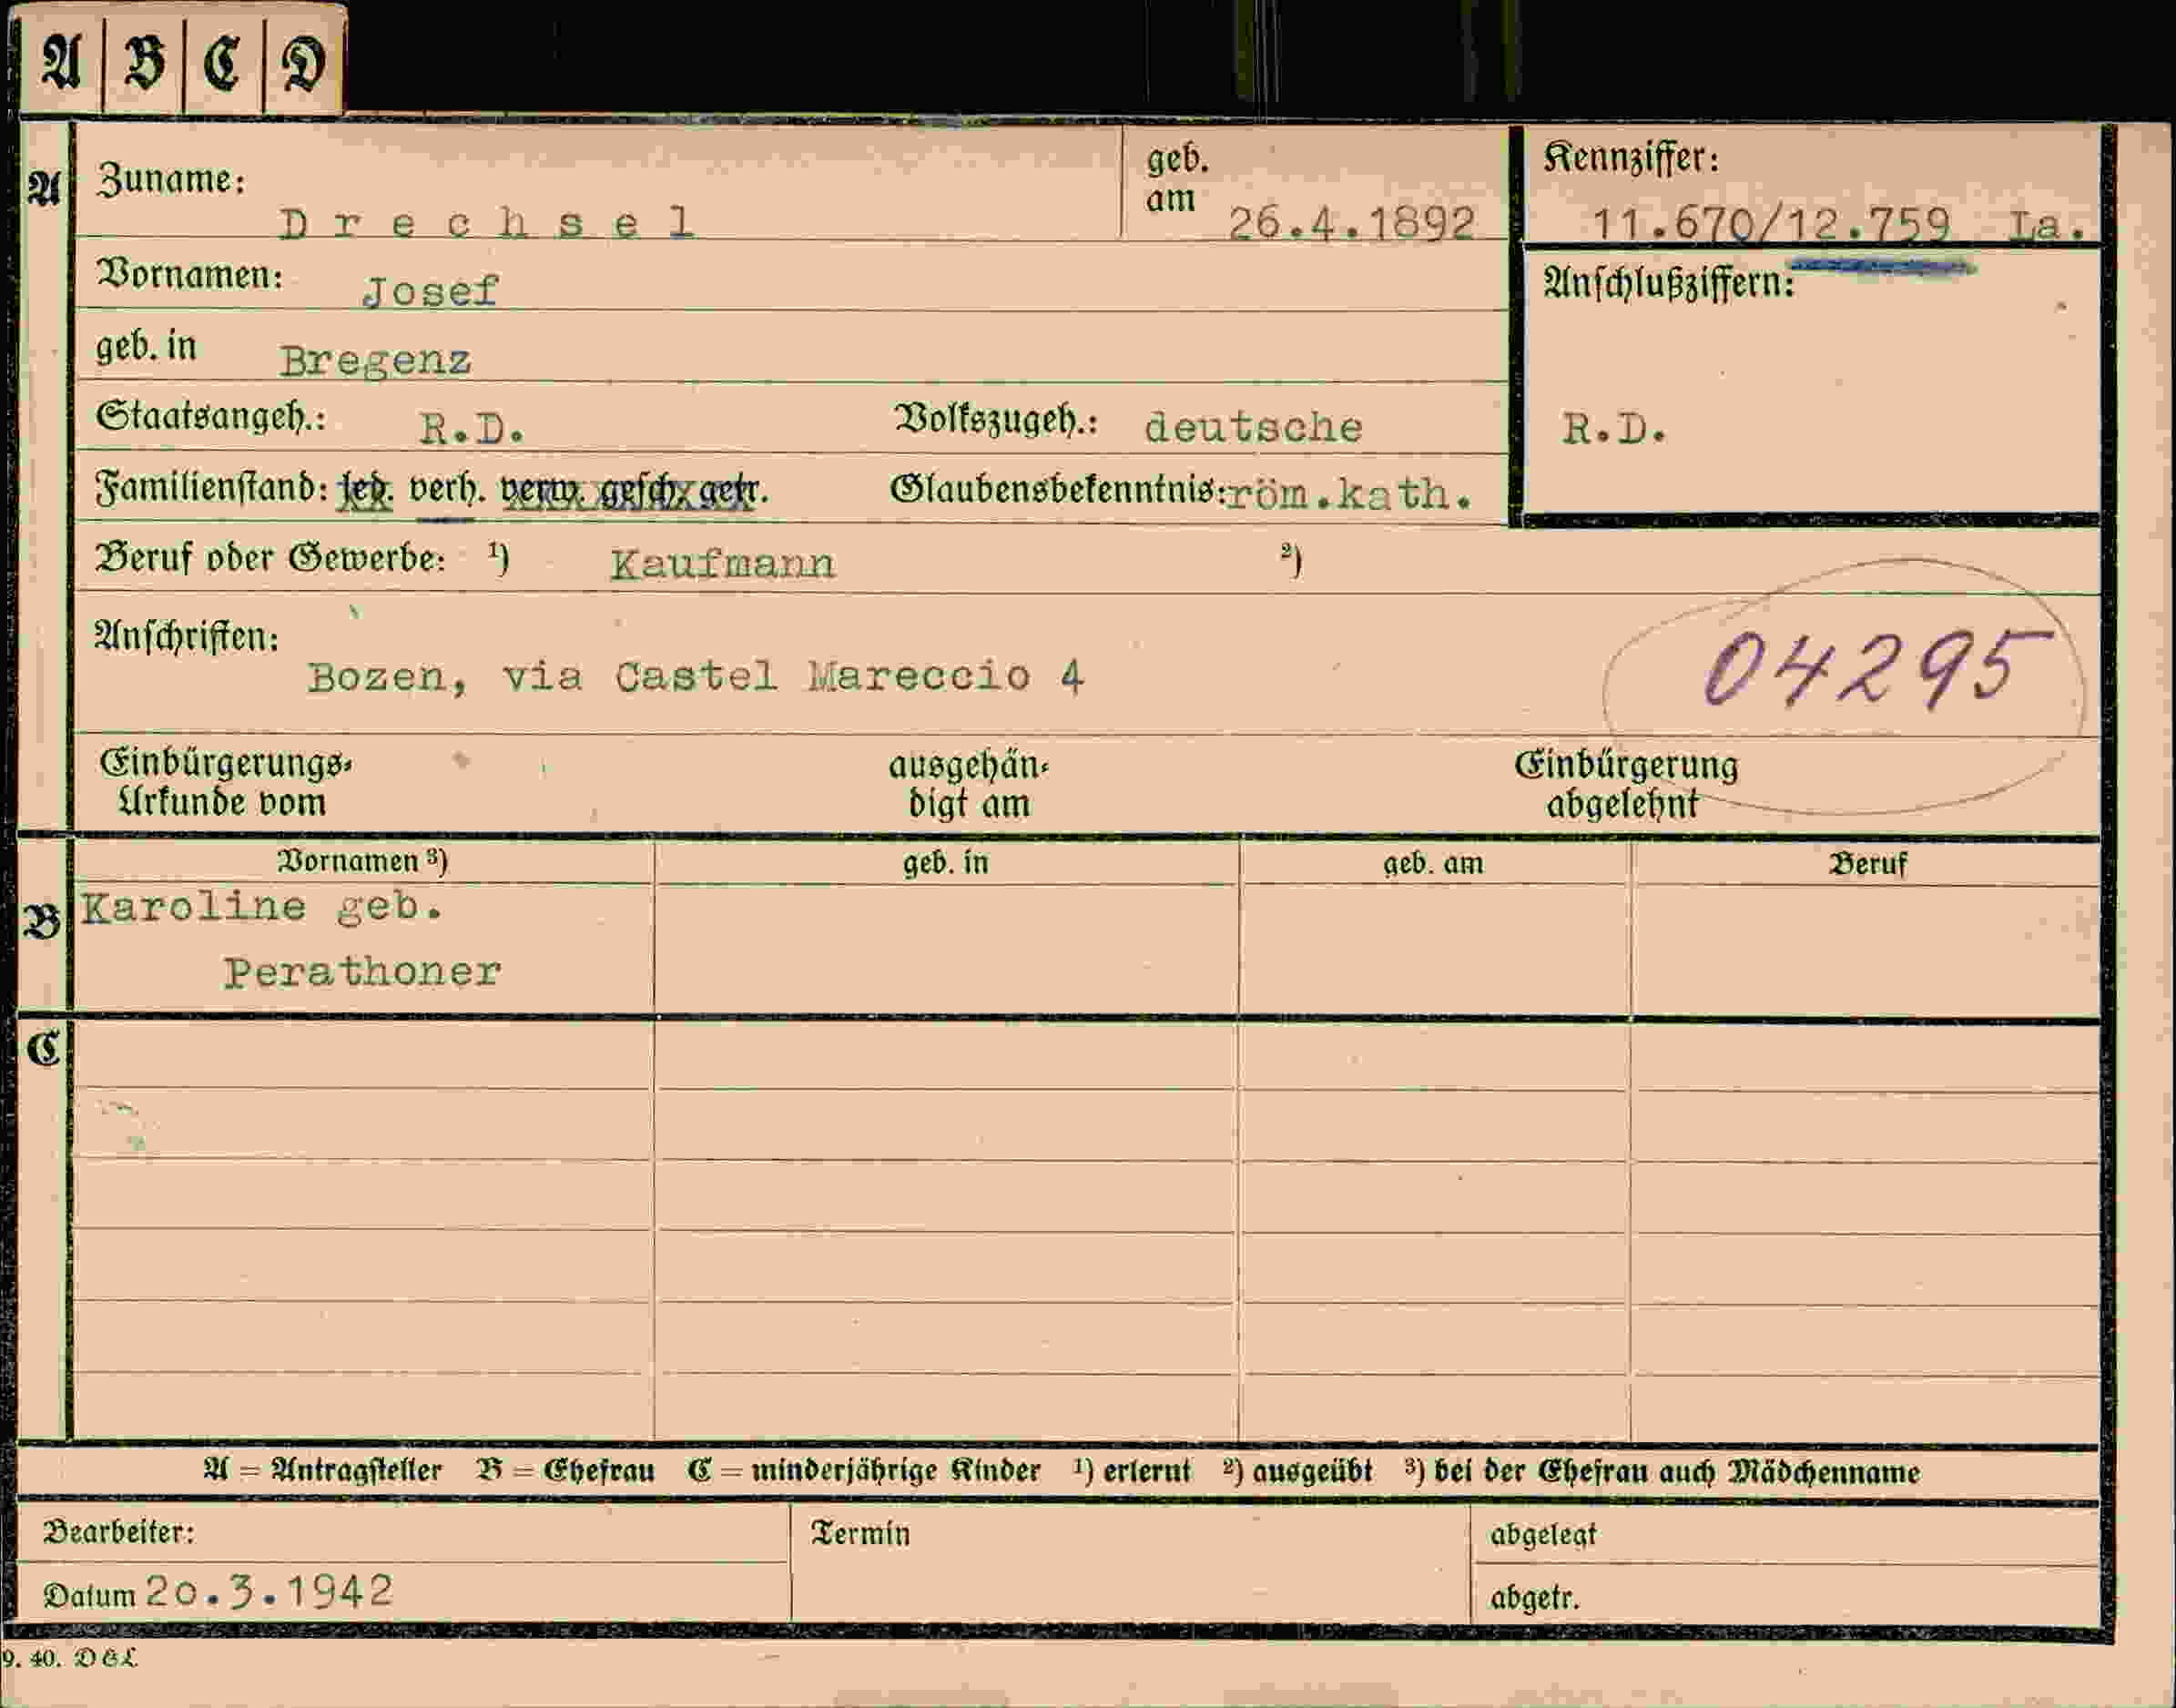 A B C D
A Zuname: Drechsel geb. am 26.4.1892
Kennziffer: 11.670/12.759 La.
Vornamen: Josef
Anschlußziffern:
geb. in Bregenz
Staatsangeh.: R.D. Volkszugeh.: deutsche
R.D.
Familienstand: led. verh. verw. gesch. getr. Glaubensbekenntnis: röm.kath.
Beruf oder Gewerbe: ¹) Kaufmann ²)
Anschriften:
Bozen, via Castel Mareccio 4
04295
Einbürgerungs-
Urkunde vom
ausgehän-
digt am
Einbürgerung
abgelehnt
Vornamen ³) geb. in geb. am Beruf
B Karoline geb.
Perathoner
C
A = Antragsteller B = Ehefrau C = minderjährige Kinder ¹) erlernt ²) ausgeübt ³) bei der Ehefrau auch Mädchenname
Bearbeiter: Termin abgelegt
Datum 20.3.1942 abgetr.
9. 40. D&L